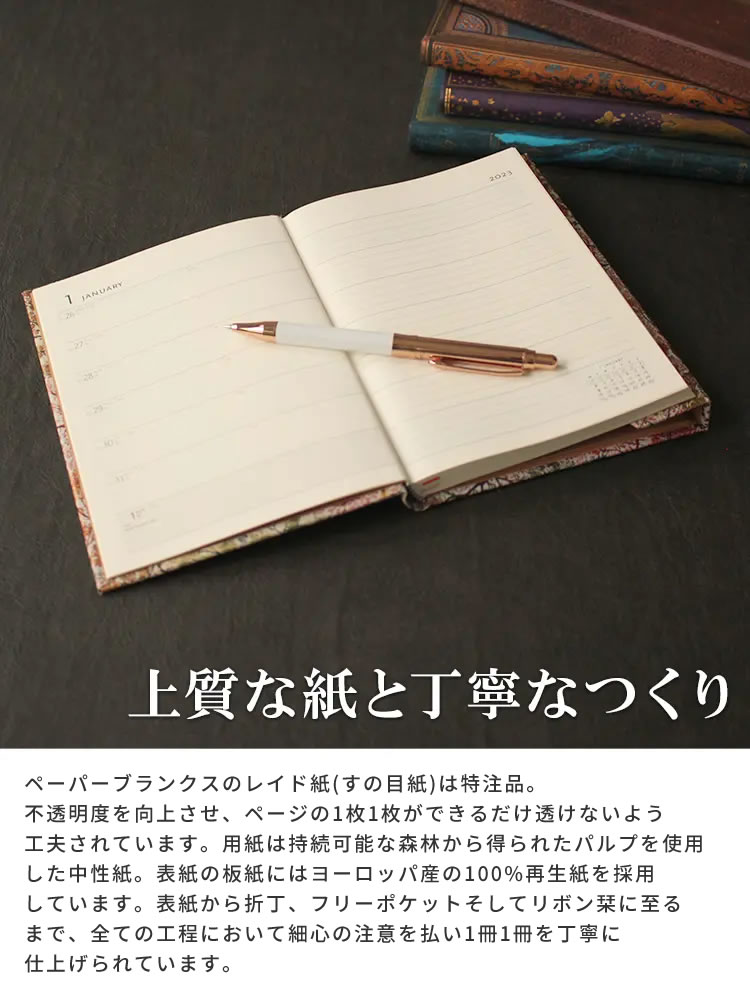 2023
1 JANUARY
26
27
28
29
30
31
1
上質な紙と丁寧なつくり
ペーパーブランクスのレイド紙(すの目紙)は特注品。
不透明度を向上させ、ページの1枚1枚ができるだけ透けないよう
工夫されています。用紙は持続可能な森林から得られたパルプを使用
した中性紙。表紙の板紙にはヨーロッパ産の100%再生紙を採用
しています。表紙から折丁、フリーポケットそしてリボン栞に至る
まで、全ての工程において細心の注意を払い1冊1冊を丁寧に
仕上げられています。